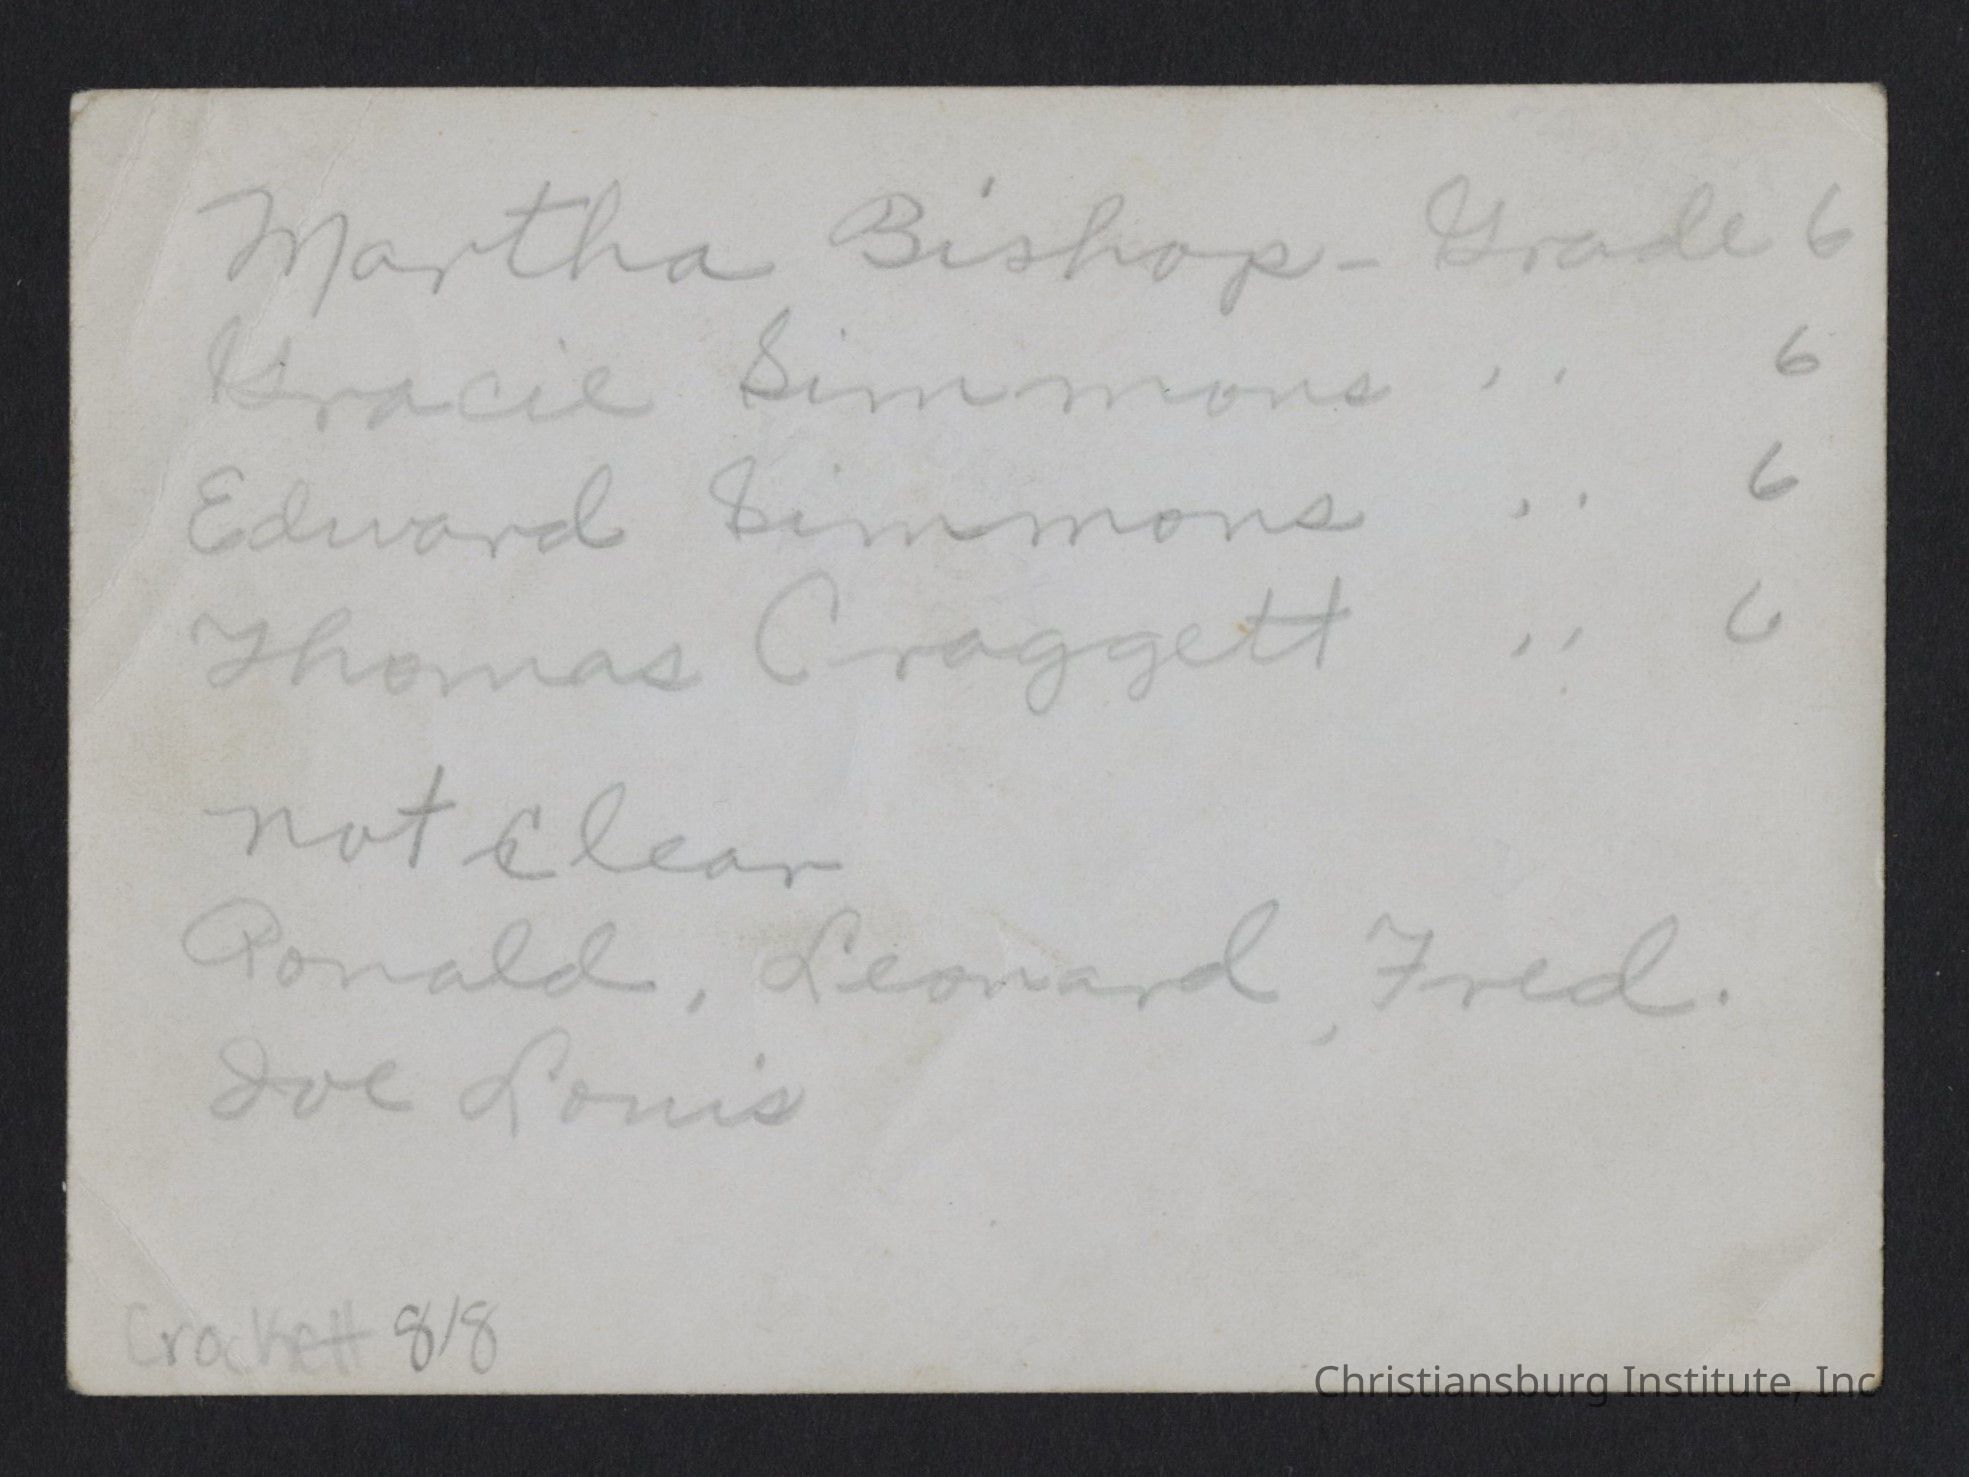 Martha Bishop - Grade 6
Gracie Simmons " 6
Edward Simmons " 6
Thomas Craggett " 6
not clear
Ronald, Leonard, Fred.
Joe Louis
Crockett 8/8
Christiansburg Institute, Inc